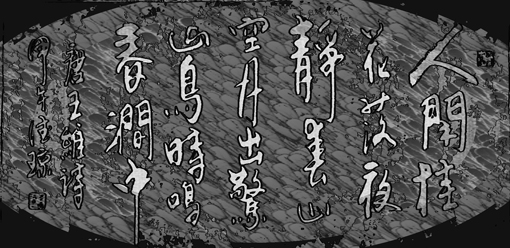 人閒桂
花落夜
靜春山
空月出驚
山鳥時鳴
春澗中
唐王維詩
甲午